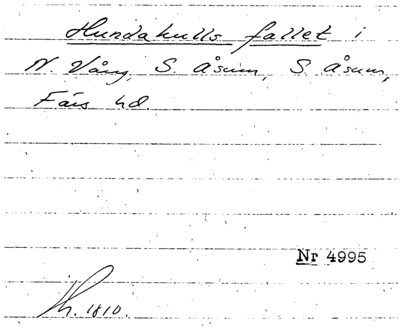 Hundakulls fallet i
N. Vång, S. Åsum, S. Åsum,
Färs hd.
Nr 4995
Th. 1810.